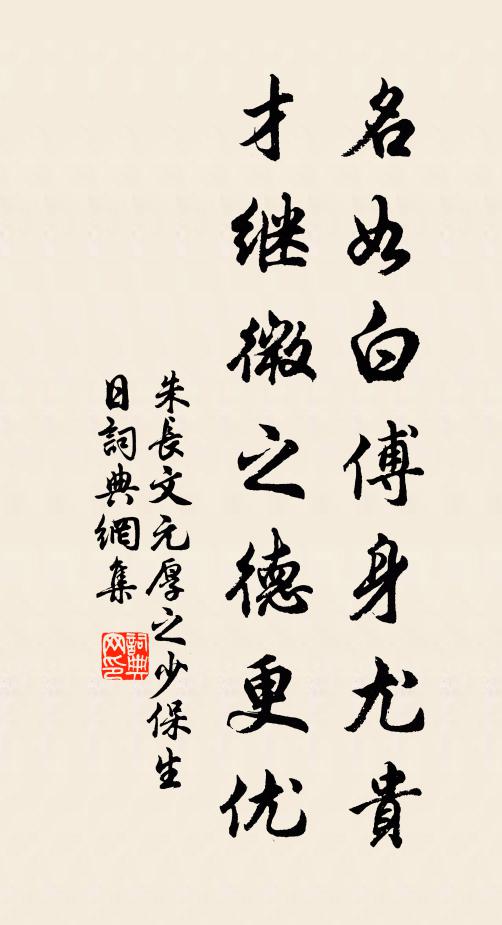 名如白傅身尤貴
才继微之德更优
朱長文元厚之少保生
日詞典網集
詞典網印